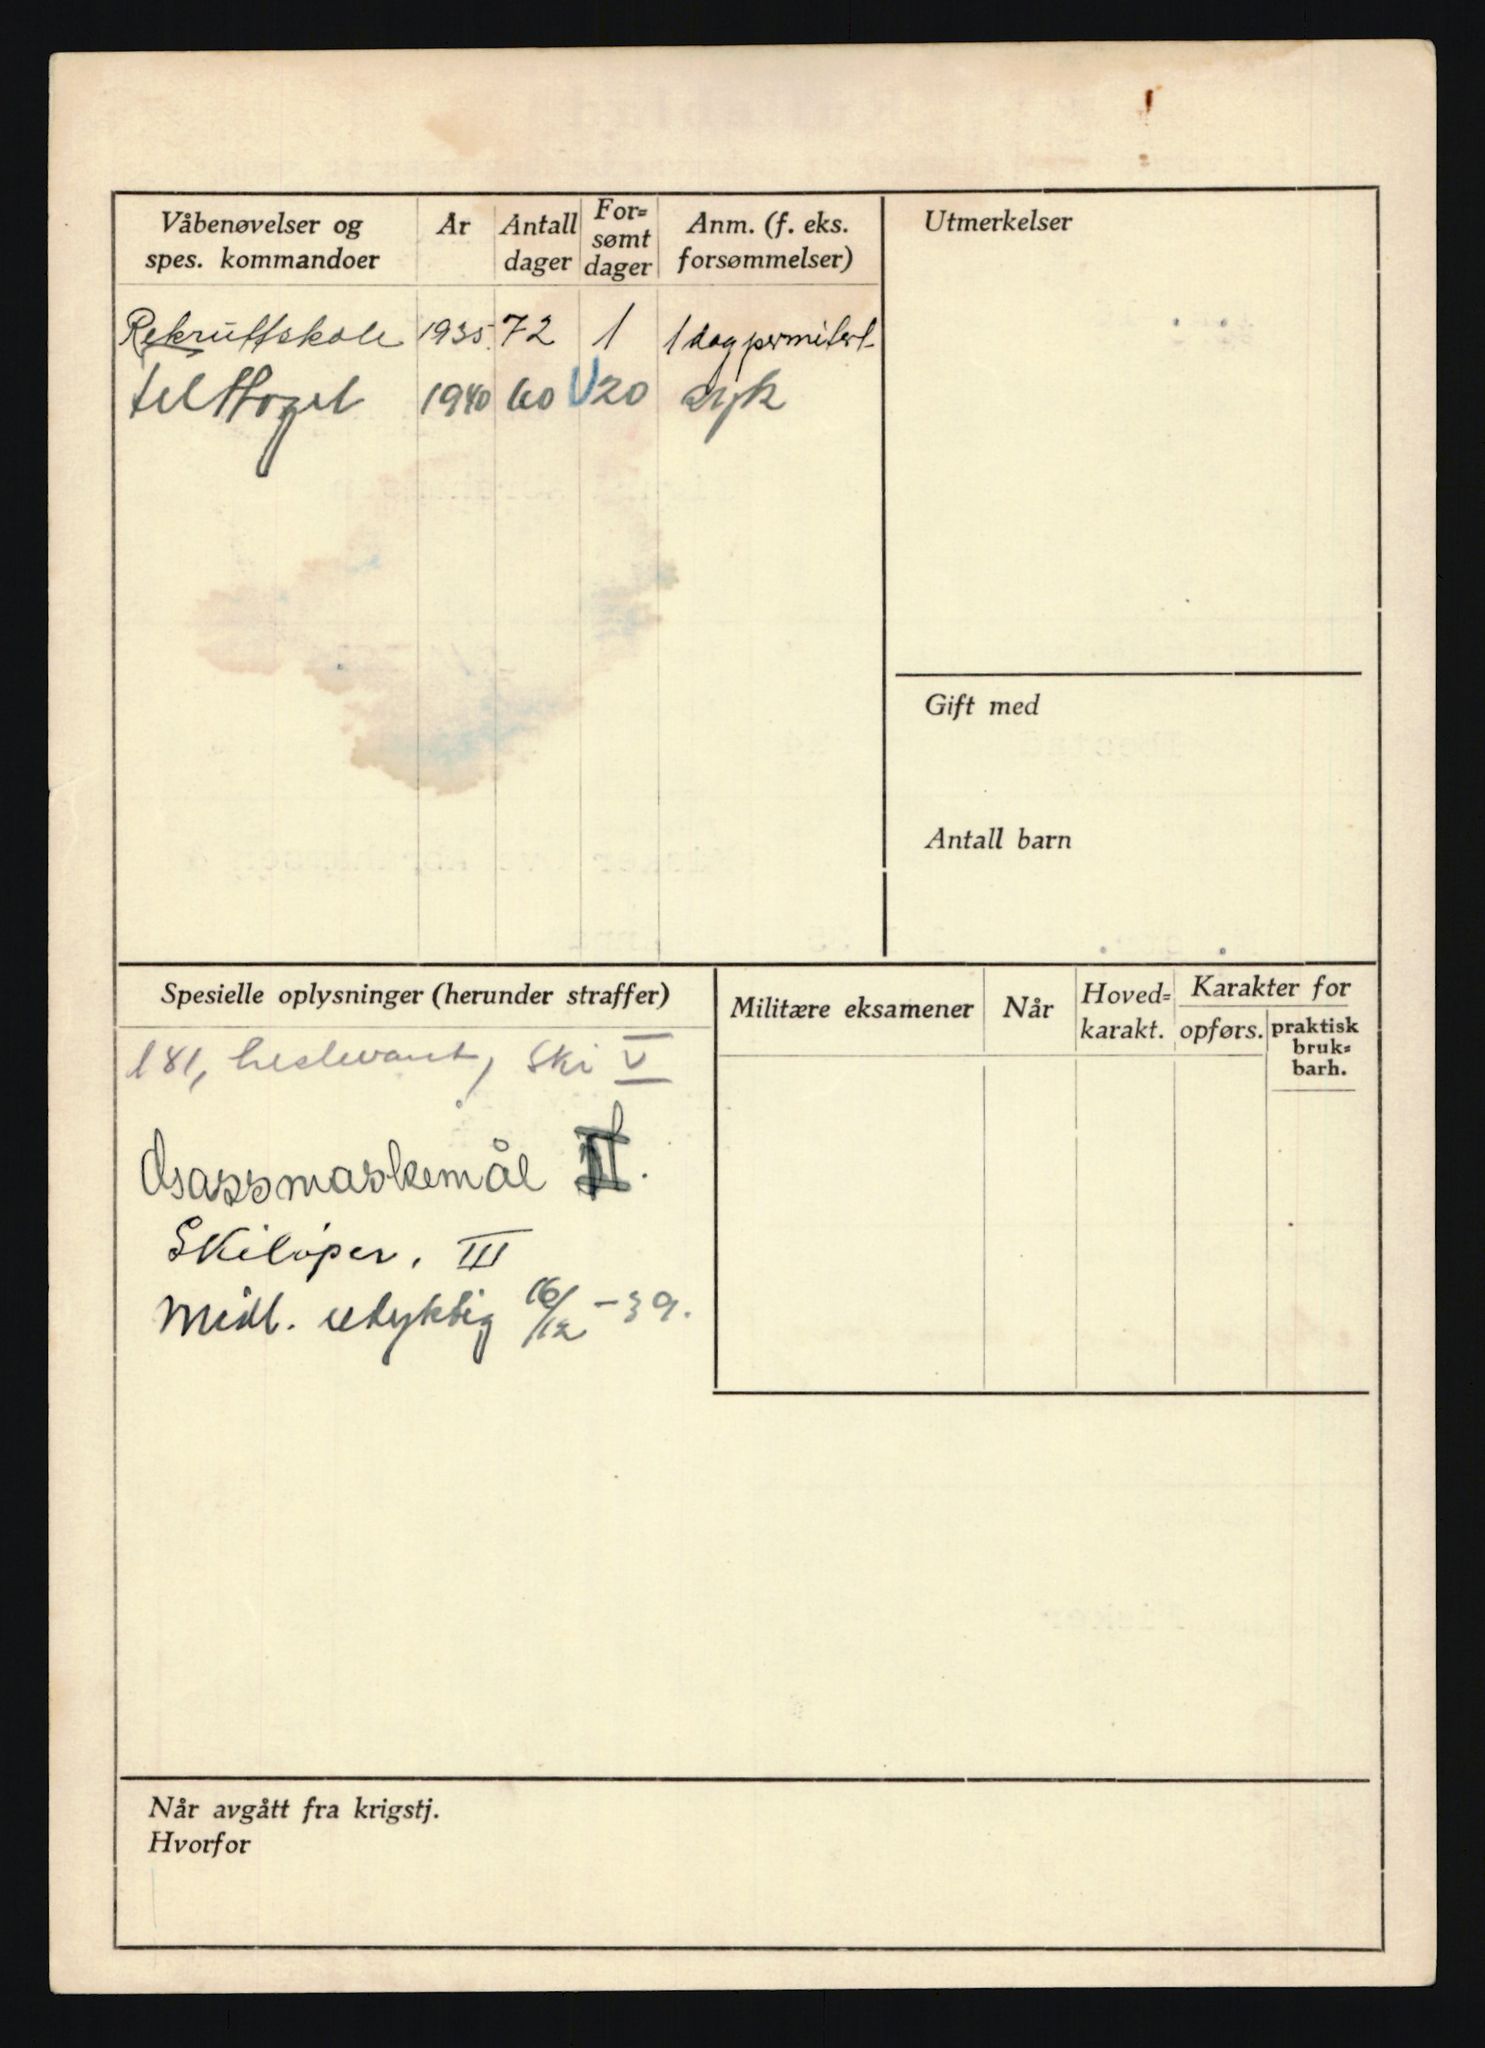 Våbenøvelser og
spes. kommandoer
År
Antall
dager
For=
sømt
dager
Anm. (f. eks.
forsømmelser)
Rekruttskole 1935 72 1 1 dag permitert
1940 60 20 syk
Utmerkelser
Gift med
Antall barn
Spesielle oplysninger (herunder straffer)
181, hestevant, Ski V
Gassmaskemål II.
Skiløper. III
Midl. udyktig 16/12 - 39.
Militære eksamener
Når
Hoved=
karakt.
Karakter for
opførs.
praktisk
bruk=
barh.
Når avgått fra krigstj.
Hvorfor